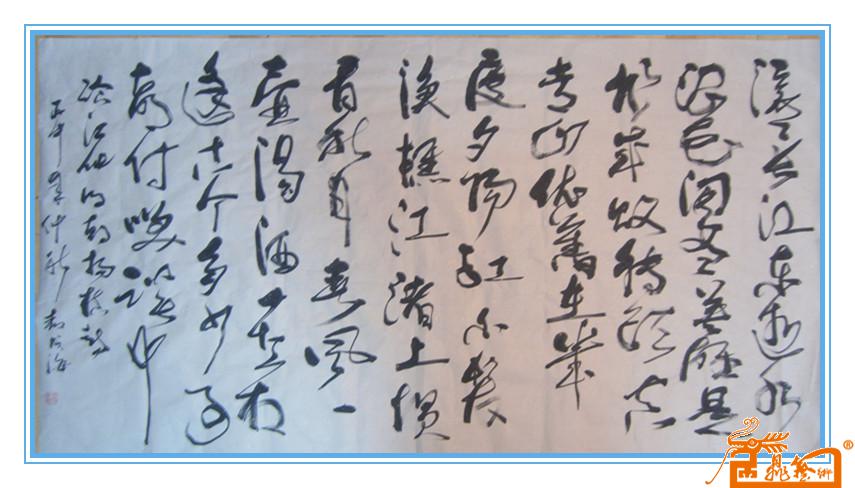 滚滚长江东逝水
浪花淘尽英雄是
非成败转头空
青山依舊在几
度夕阳红白发
渔樵江渚上惯
看秋月春风一
壶浊酒喜相
逢古今多少事
都付笑谈中
临江仙明朝杨慎词
仲秋